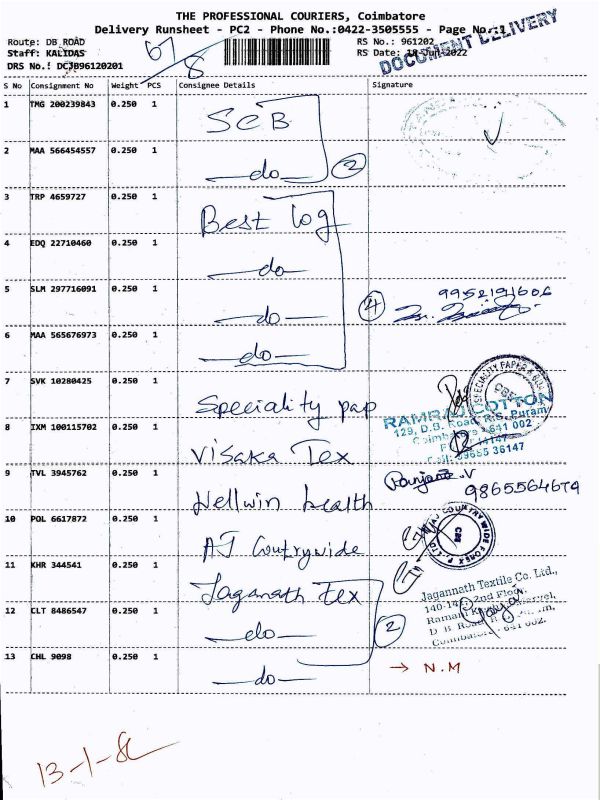 THE PROFESSIONAL COURIERS, Coimbatore
Delivery Runsheet - PC2 - Phone No.:0422-3505555 - Page No.:1
DOCUMENT DELIVERY
Route: DB ROAD
Staff: KALIDAS
DRS No.: DCJB96120201
67/8
RS No.: 961202
RS Date: 18-Jun-2022
S No Consignment No Weight PCS Consignee Details Signature
1 TMG 200239843 0.250 1 SCB
2 MAA 566454557 0.250 1 —do— 2
3 TRP 4659727 0.250 1 Best log
4 EDQ 22710460 0.250 1 —do—
5 SLM 297716091 0.250 1 —do— 4 9952191606
6 MAA 565676973 0.250 1 —do—
7 SVK 10280425 0.250 1 Speciality pap
SPECIALITY PAPER
CBE
8 IXM 100115702 0.250 1 Visaka Tex
RAMRAJ COTTON
129, D.B. Road, R.S. Puram,
Coimbatore - 641 002
Cell: 89655 36147
9 TVL 3945762 0.250 1 Wellwin health
Ranjani.V
9865564679
10 POL 6617872 0.250 1 AJ Countrywide
CBE
11 KHR 344541 0.250 1 Jaganath Tex
12 CLT 8486547 0.250 1 —do— 2
Jagannath Textile Co. Ltd.,
2nd Floor,
D B Road
Coimbatore - 641 002.
13 CHL 9098 0.250 1 —do— → N.M
13-1-